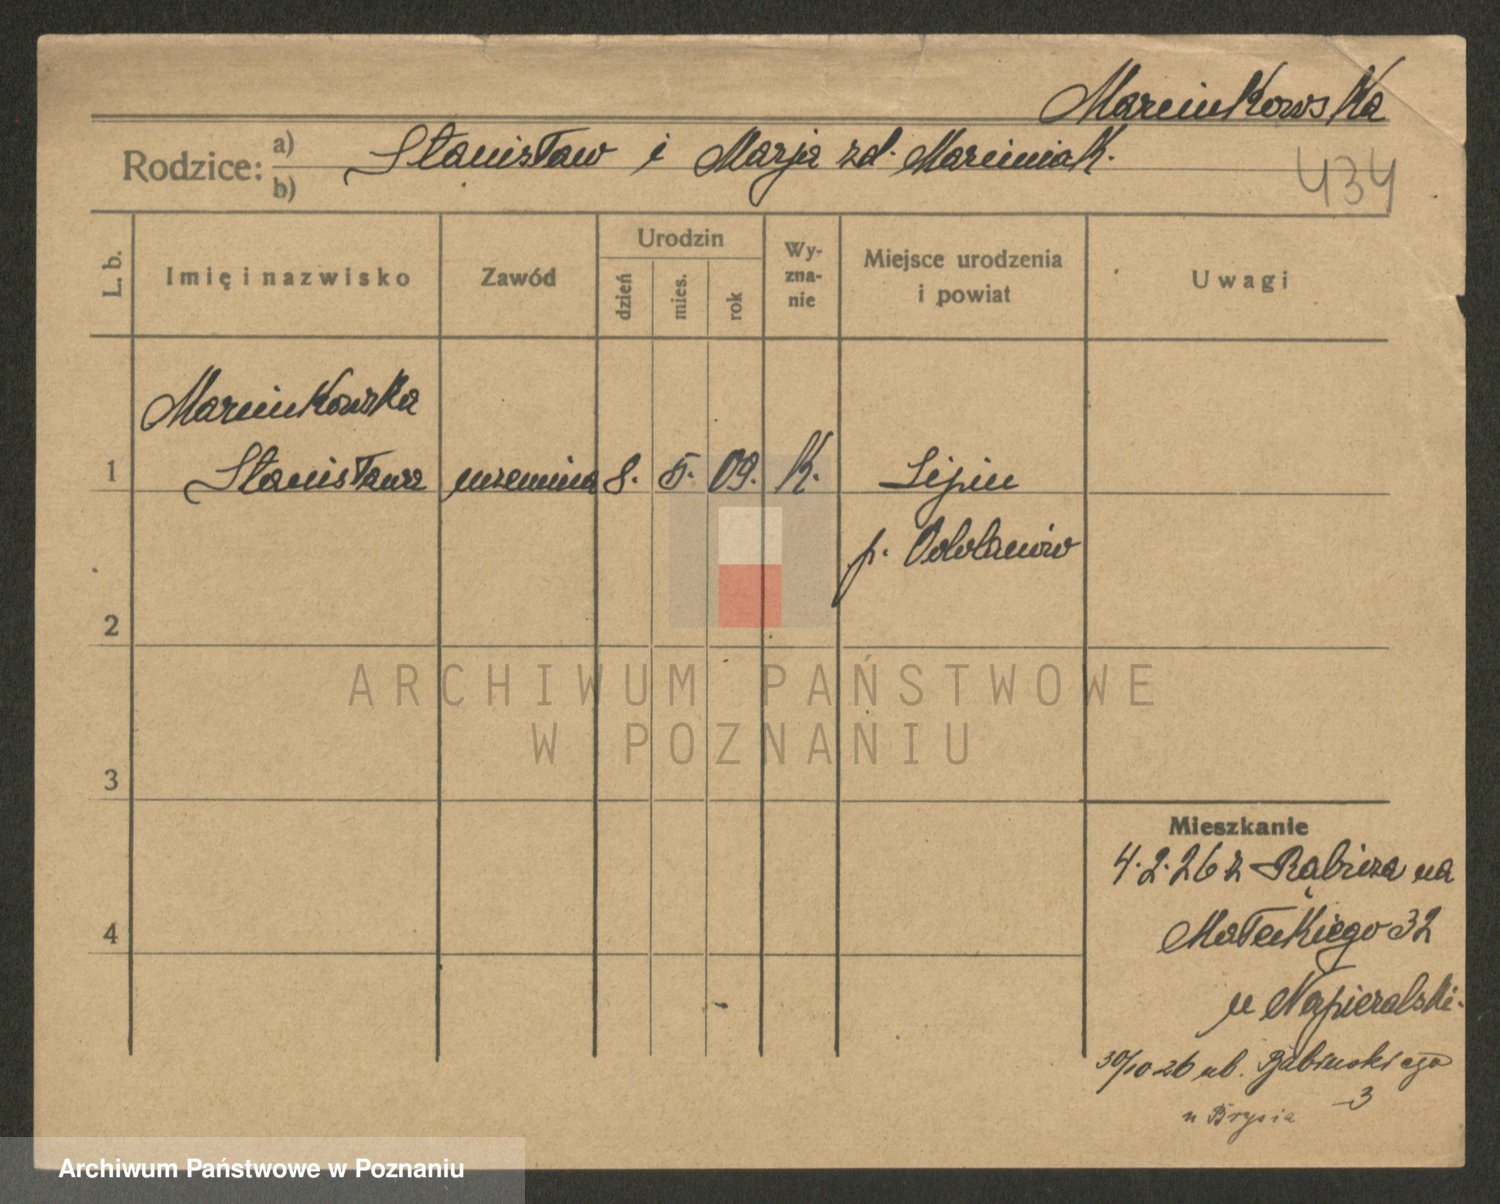 Marcinkowska
Rodzice: a) Stanisław i Marja zd. Marciniak.
b)
434
L. b.
Imię i nazwisko
Zawód
Urodzin
dzień
mies.
rok
Wy-
zna-
nie
Miejsce urodzenia
i powiat
Uwagi
Marcinkowska
1 Stanisława uczennica 8. 5. 09. K. Lipin
p. Odolanów
2
3
4
Mieszkanie
4.2.26 z Rąbiza na
Małeckiego 32
u Napieralski.
30/10 26 ul. Babińskiego
3
u Brysia
ARCHIWUM PAŃSTWOWE
W POZNANIU
Archiwum Państwowe w Poznaniu